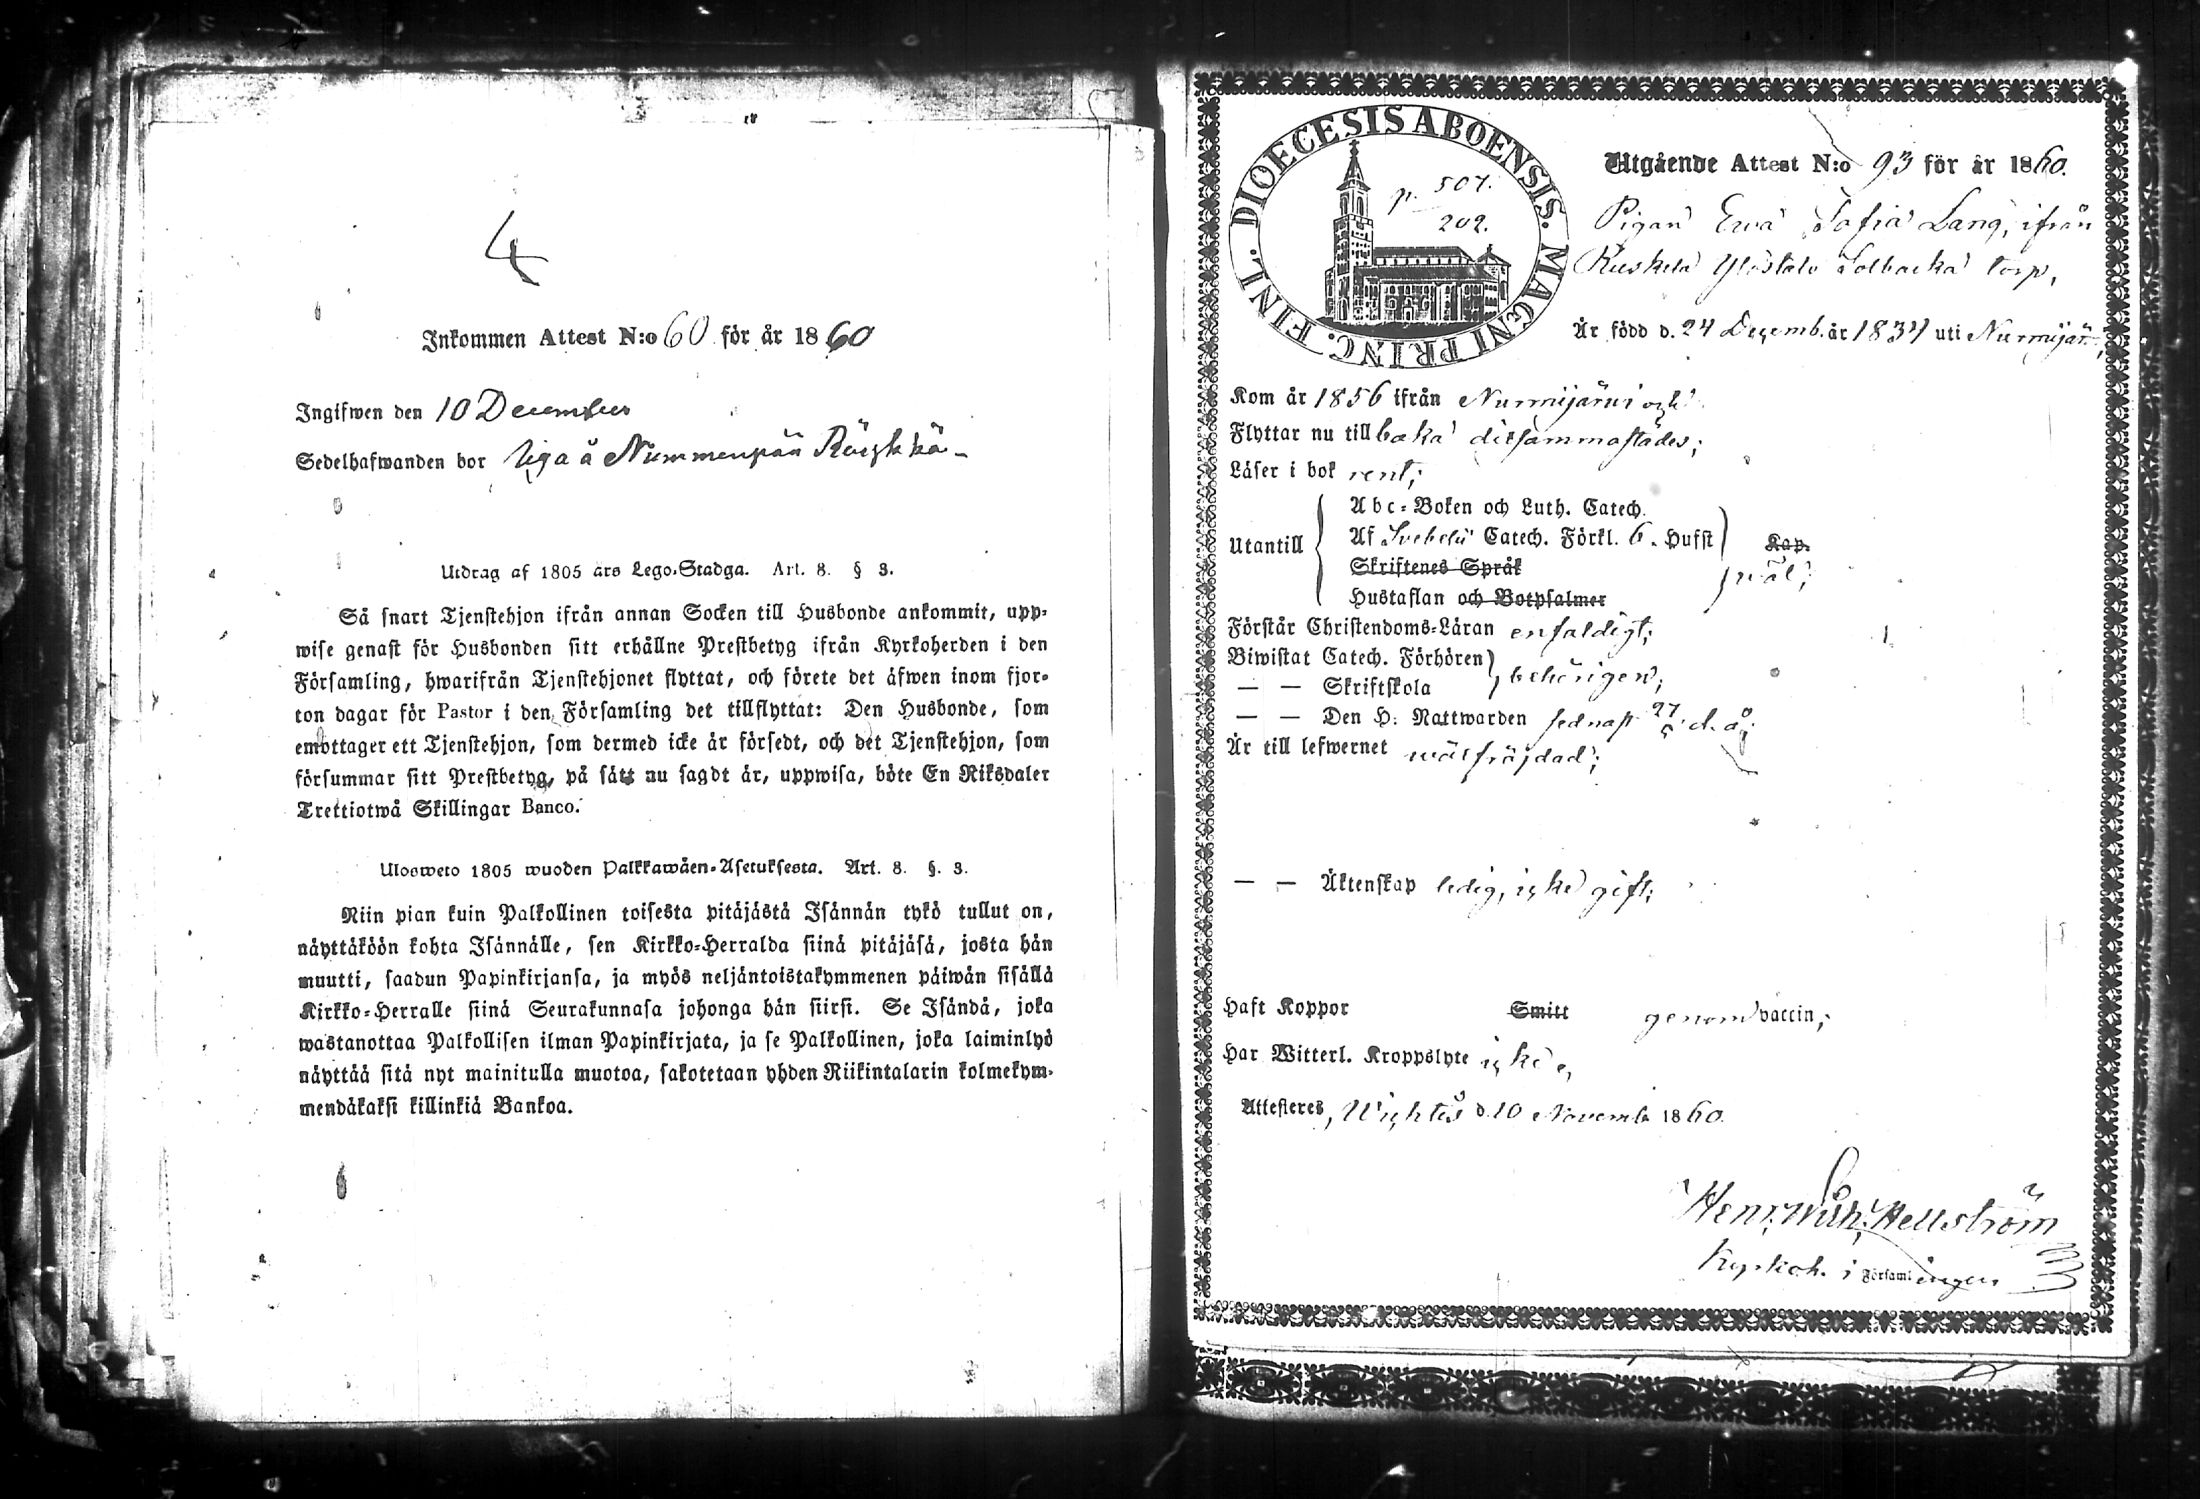 4
Inkommen Attest N:o 60 för år 1860
Ingifwen den 10 December
Sedelhafwanden bor å Nummenpää
Utdrag af 1805 års Lego-Stadga. Art. 8. § 3.
Så snart Tjenstehjon ifrån annan Socken till Husbonde ankommit, upp-
wise genast för Husbonden sitt erhållne Prestbetyg ifrån Kyrkoherden i den
Församling, hwarifrån Tjenstehjonet flyttat, och förete det äfwen inom fjor-
ton dagar för Pastor i den Församling det tillflyttat: Den Husbonde, som
emottager ett Tjenstehjon, som dermed icke är försedt, och det Tjenstehjon, som
försummar sitt Prestbetyg, på sätt nu sagdt är, uppwisa, böte En Riksdaler
Trettiotwå Skillingar Banco.
Ulosweto 1805 wuoden Palkkawäen-Asetuksesta. Art. 8. §. 3.
Niin pian kuin Palkollinen toisesta pitäjästä Isännän tykö tullut on,
näyttäköön kohta Isännälle, sen Kirkko-Herralda siinä pitäjäsä, josta hän
muutti, saadun Papinkirjansa, ja myös neljäntoistakymmenen päiwän sisällä
Kirkko-Herralle siinä Seurakunnasa johonga hän siirsi. Se Isändä, joka
wastanottaa Palkollisen ilman Papinkirjata, ja se Palkollinen, joka laiminlyö
näyttää sitä nyt mainitulla muotoa, sakotetaan yhden Riikintalarin kolmekym-
mendäkaksi killinkiä Bankoa.
DIOECESIS ABOENSIS. MAGNI PRINC. FINL.
p. 507.
202.
Utgående Attest N:o 93 för år 1860.
Pigan Ewa Sofia Lang, ifrån
Kuskela Ylöstalo Solbacka torp,
Är född d. 24 Decemb. år 1834 uti Nurmijärvi,
Kom år 1856 ifrån Nurmijärvi och
Flyttar nu tillbaka ditsammastädes;
Läser i bok rent;
Utantill
Abc-Boken och Luth. Catech.
Af Svebelii Catech. Förkl. 6. Hufst
Kap.
Skriftenes Språk
wäl;
Hustaflan och Botpsalmer
Förstår Christendoms-Läran enfaldigt;
Biwistat Catech. Förhören
— — Skriftskola
behörigen;
— — Den H. Nattwarden sednast d. å.;
Är till lefwernet wälfräjdad;
— — Äktenskap ledig, icke gift;
Haft Koppor Smitt genom vaccin;
Har Witterl. Kroppslyte icke,
Attesteres, Wichtis d. 10 Novemb. 1860.
Henr. Wilh. Hellström
i Församlingen